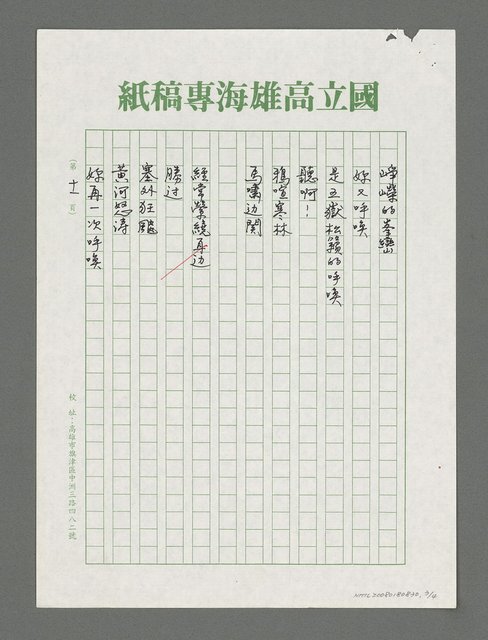 國立高雄海專稿紙
崢嶸的峯巒
妳又呼喚
是五嶽松籟的呼喚
聽啊!
鴉喧寒林
馬嘯边関
經常縈繞身边
勝过
塞外狂飈
黃河怒濤
妳再一次呼喚
(第十一頁)
校址:高雄市旗津區中洲三路四八二號
NMTL20080180830, 3/4